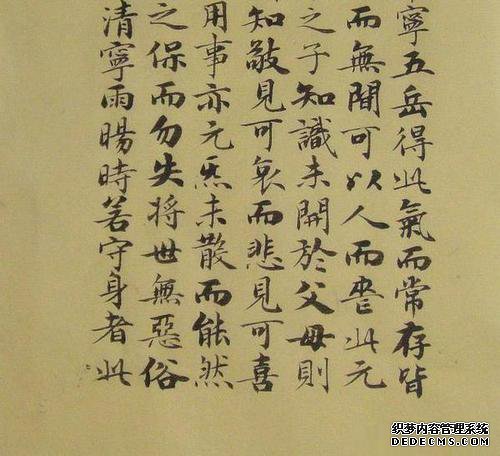 寧五岳得此氣而常存皆
而無間可以人而喪此元
之子知識未開於父母則
知敬見可哀而悲見可喜
用事亦元炁未散而能然
之保而勿失將世無惡俗
清寧雨暘時若守身者此
织梦内容管理系统
DEDECMS.COM